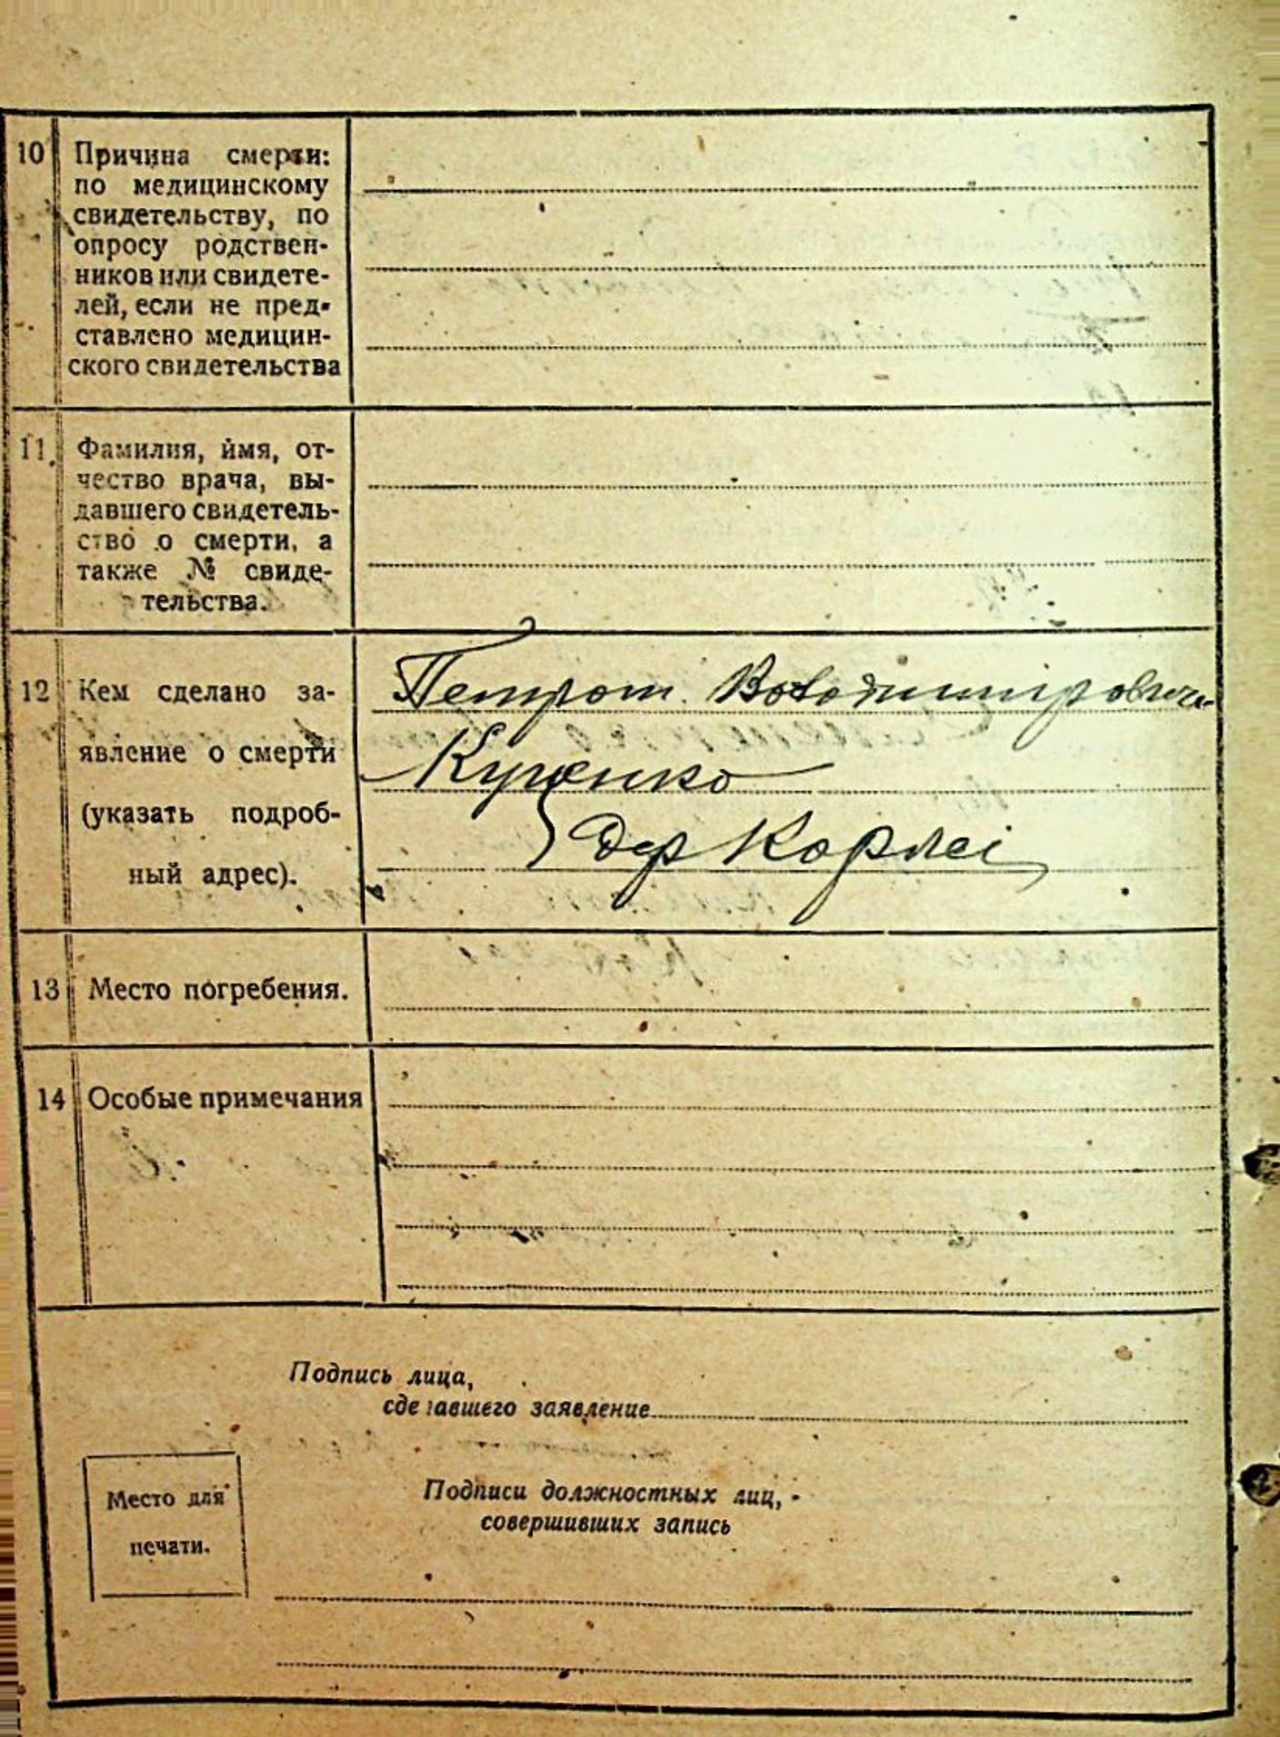 10 Причина смерти:
по медицинскому
свидетельству, по
опросу родствен-
ников или свидете-
лей, если не пред-
ставлено медицин-
ского свидетельства
11. Фамилия, имя, от-
чество врача, вы-
давшего свидетель-
ство о смерти, а
также № свиде-
тельства.
12 Кем сделано за-
явление о смерти
(указать подроб-
ный адрес).
Петром
Куценко
дер
13 Место погребения.
14 Особые примечания
Подпись лица,
сделавшего заявление
Место для
печати.
Подписи должностных лиц,
совершивших запись